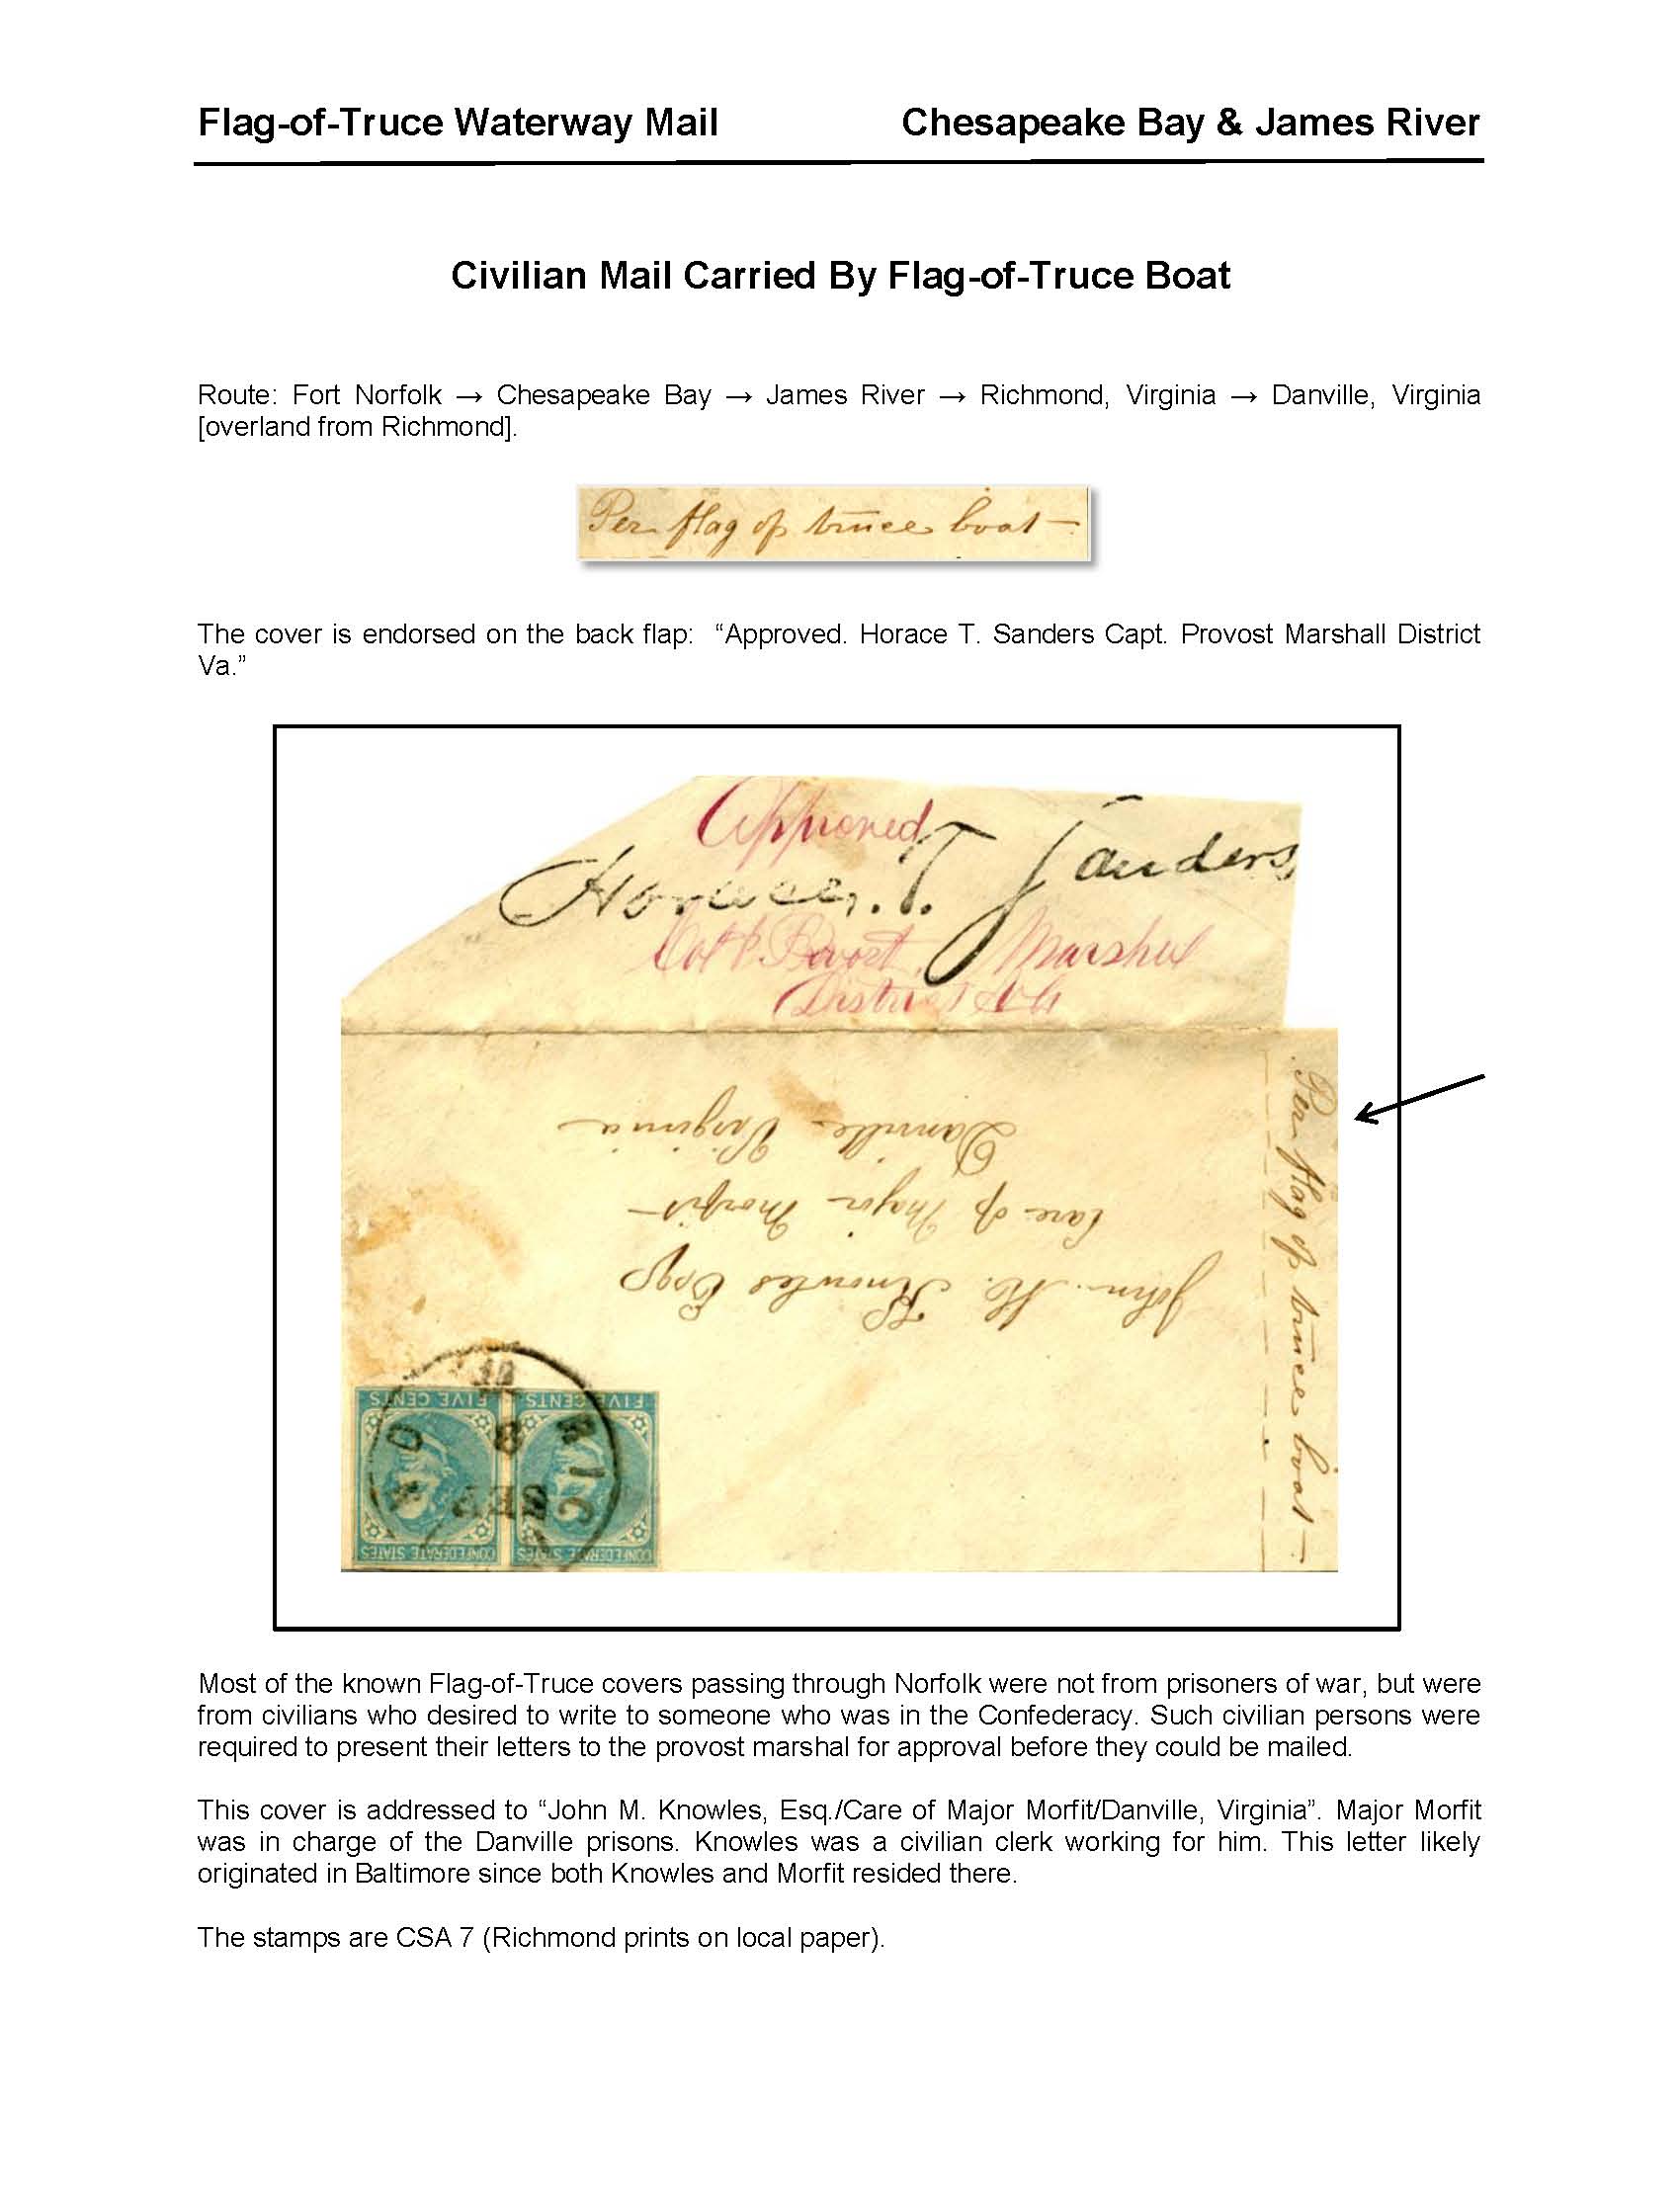 Flag-of-Truce Waterway Mail Chesapeake Bay & James River
Civilian Mail Carried By Flag-of-Truce Boat
Route: Fort Norfolk → Chesapeake Bay → James River → Richmond, Virginia → Danville, Virginia
[overland from Richmond].
Per flag of truce boat –
The cover is endorsed on the back flap: “Approved. Horace T. Sanders Capt. Provost Marshall District
Va.”
Approved
Horace. T. Sanders
Provost Marshal
District Va
Per flag of truce boat –
John. M. Knowles Esqr
Care of Major Morfit –
Danville – Virginia –
FIVE CENTS FIVE CENTS
8
SEP
CONFEDERATE STATES CONFEDERATE STATES
Most of the known Flag-of-Truce covers passing through Norfolk were not from prisoners of war, but were
from civilians who desired to write to someone who was in the Confederacy. Such civilian persons were
required to present their letters to the provost marshal for approval before they could be mailed.
This cover is addressed to “John M. Knowles, Esq./Care of Major Morfit/Danville, Virginia”. Major Morfit
was in charge of the Danville prisons. Knowles was a civilian clerk working for him. This letter likely
originated in Baltimore since both Knowles and Morfit resided there.
The stamps are CSA 7 (Richmond prints on local paper).